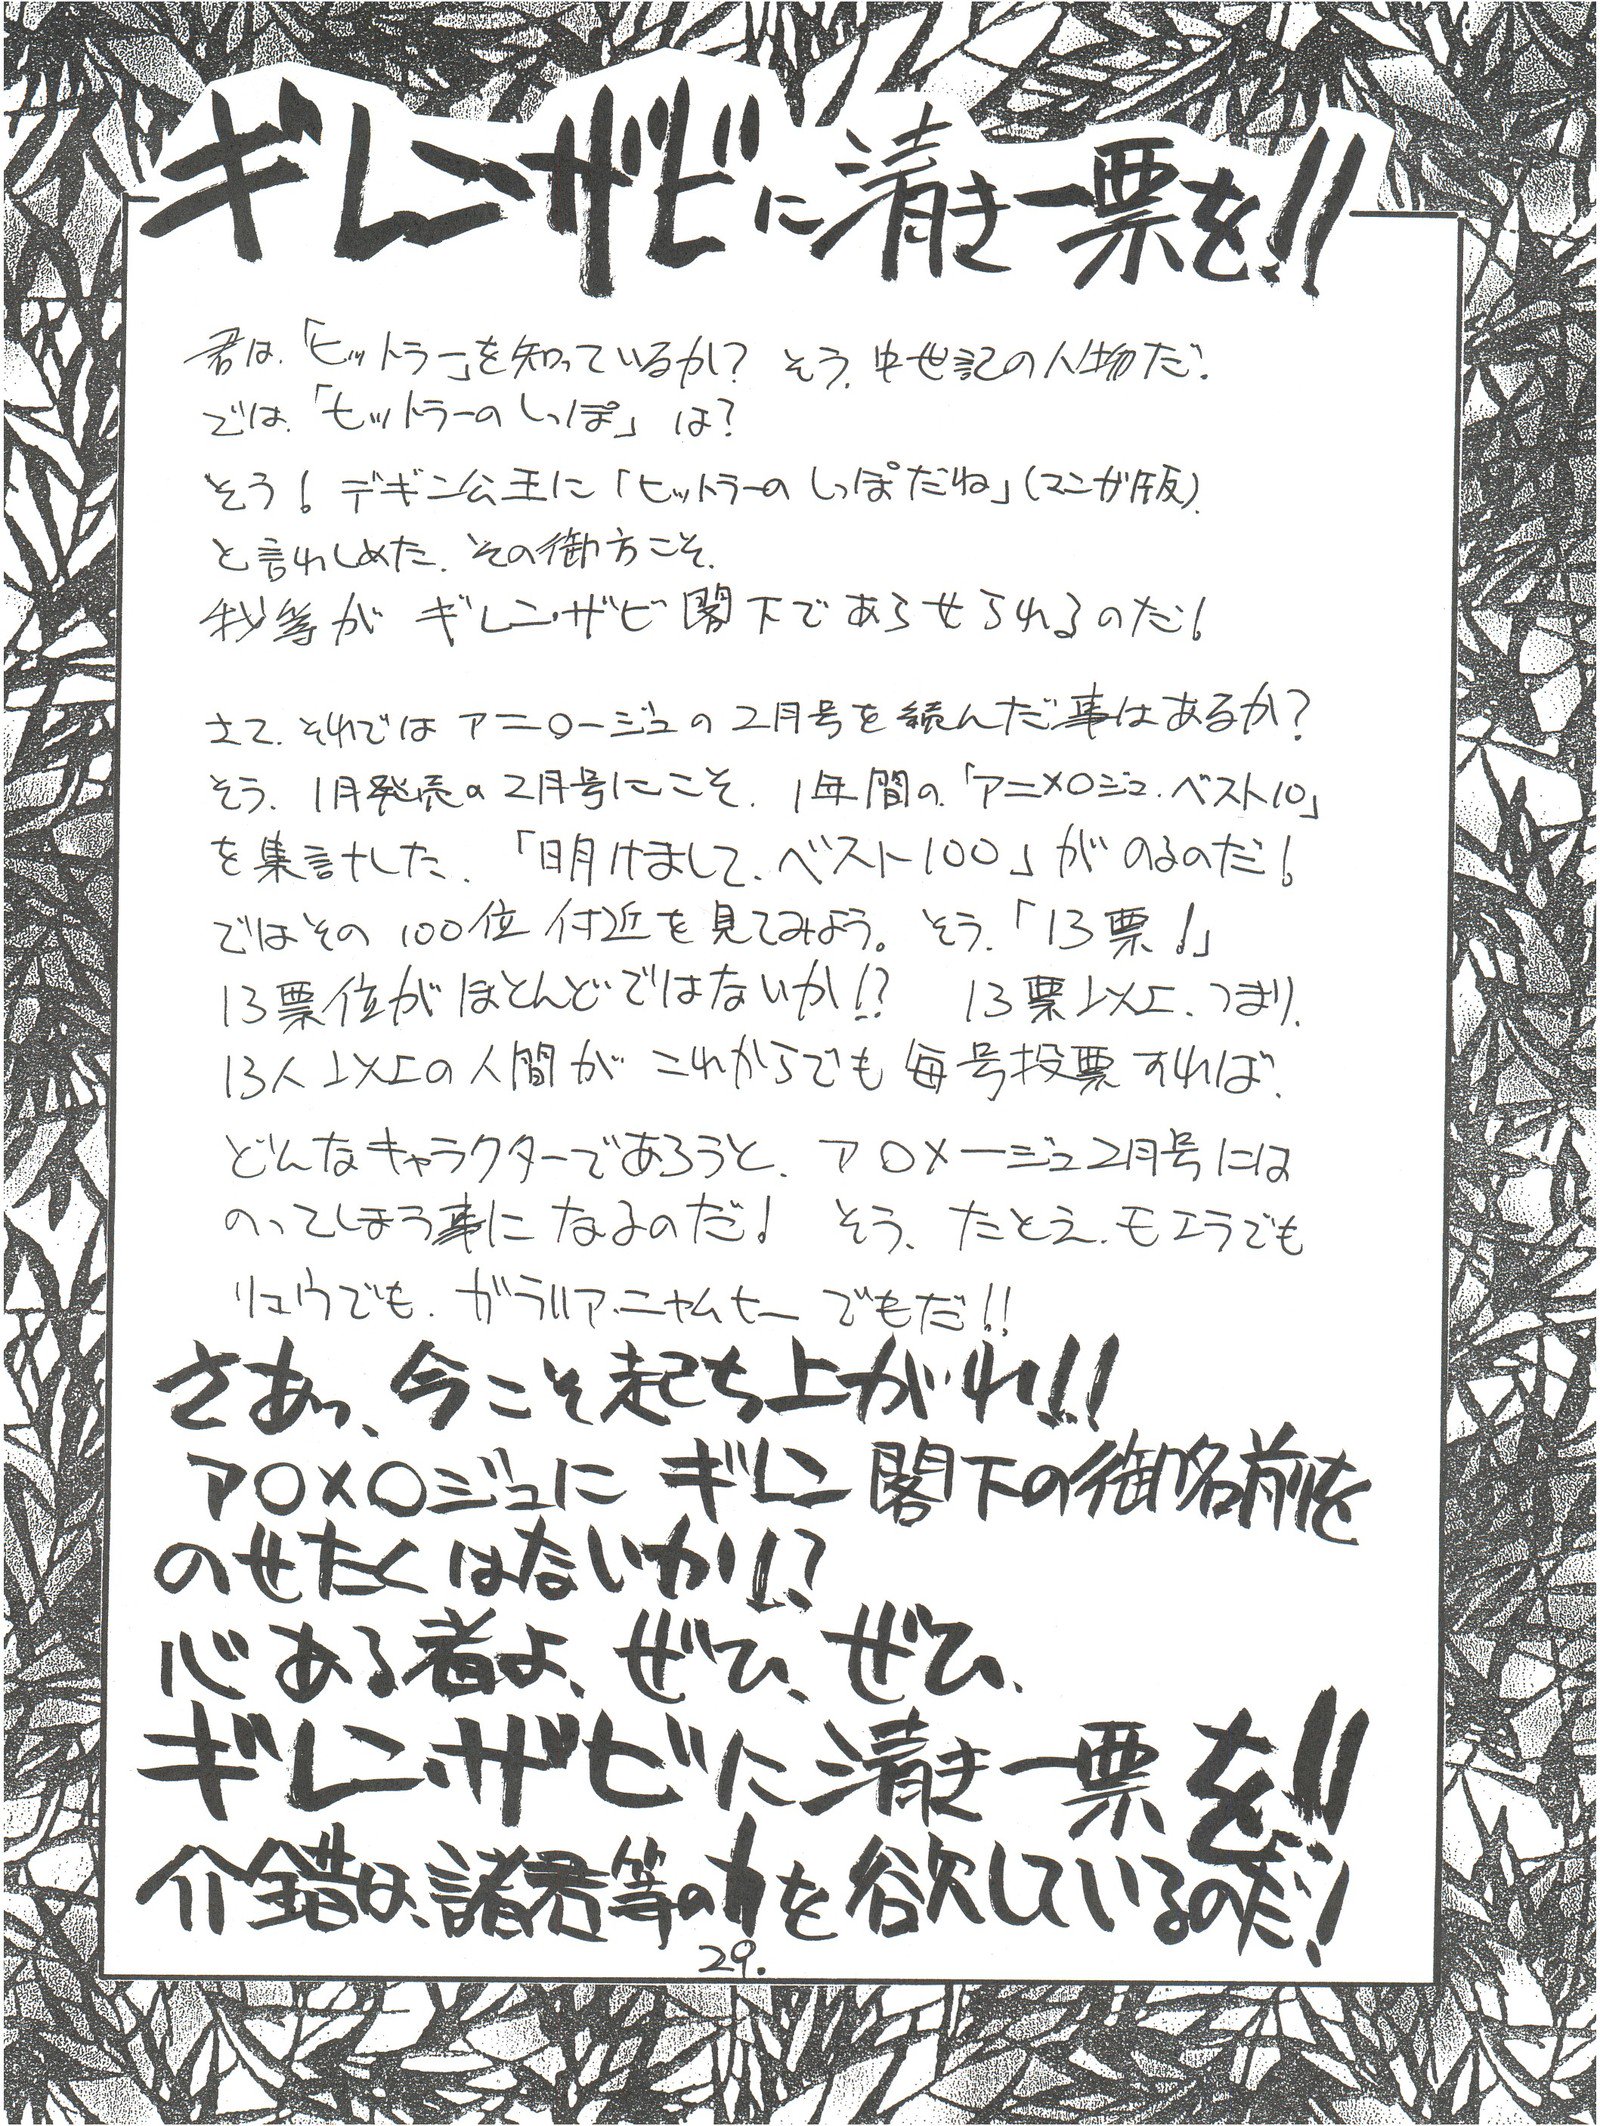 ギレン・ザビに清き一票を!!
君は、「ヒットラー」を知っているか? そう、中世記の人物だ。
では、「ヒットラーのしっぽ」は?
そう! デギン公王に「ヒットラーのしっぽだね」(マンガ版)
と言わしめた、その御方こそ、
我等が ギレン・ザビ閣下であらせられるのだ!
さて、それではアニ〇ージュの2月号を読んだ事はあるか?
そう、1月発売の2月号にこそ、1年間の「アニメ〇ジュ・ベスト10」
を集計した、「明けまして、ベスト100」がのるのだ!
ではその100位付近を見てみよう。そう、「13票!」
13票位がほとんどではないか!? 13票以上、つまり、
13人以上の人間がこれからでも毎号投票すれば、
どんなキャラクターであろうと、ア〇メージュ2月号には
のってしまう事になるのだ! そう、たとえ、モエラでも
リュウでも、ガラリア・ニャムヒーでもだ!!
さあっ、今こそ起ち上がれ!!
ア〇メ〇ジュにギレン閣下の御名前を
のせたくはないかり!?
心ある者よ、ぜひ、ぜひ、
ギレン・ザビに清き一票を!!
介錯は、諸君等の力を欲しているのだ!
29.